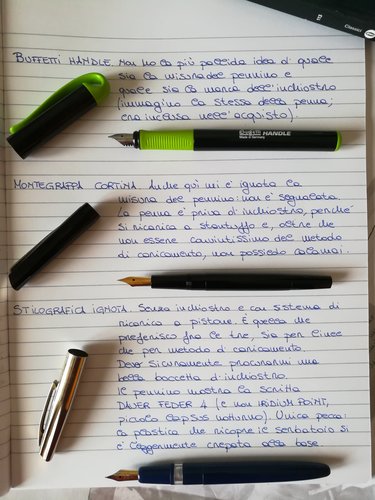 Classici
BUFFETTI HANDLE. Non ho la più pallida idea di quale
sia la misura del pennino e
quale sia la marca dell'inchiostro
(immagino la stessa della penna;
era inclusa nell'acquisto).
Buffetti HANDLE
Made in Germany
MONTEGRAPPA CORTINA. Anche qui mi è ignota la
misura del pennino: non è segnalata.
La penna è priva di inchiostro, perché
si ricarica a stantuffo e, oltre che
non essere convintissimo del metodo
di caricamento, non possiedo calamai.
STILOGRAFICA IGNOTA. Senza inchiostro e con sistema di
ricarica a pistone. È quella che
preferisco fra le tre, sia per linee
che per metodo di caricamento.
Devo sicuramente procurarmi una
bella boccetta d'inchiostro.
Il pennino mostra la scritta
DAUER FEDER 4 (e non IRIDIUM POINT,
piccolo lapsus notturno). Unica pecca:
la plastica che ricopre il serbatoio si
è leggermente crepata alla base